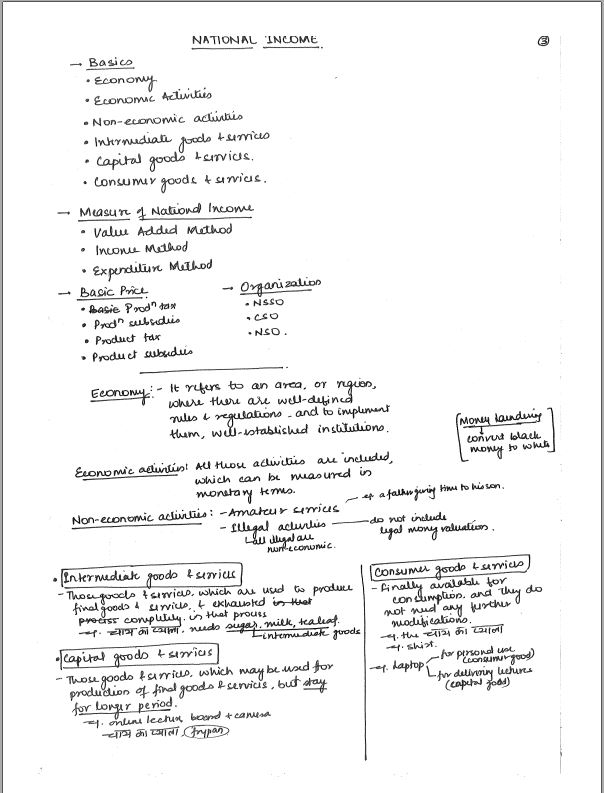 NATIONAL INCOME.
③
→ Basics
• Economy
• Economic Activities
• Non-economic activities
• Intermediate goods & services
• Capital goods & services.
• Consumer goods & services.
→ Measure of National Income
• Value Added Method
• Income Method
• Expenditure Method
→ Basic Price
• Basic Prodⁿ tax
• Prodⁿ subsidies
• Product tax
• Product subsidies
→ Organization
• NSSO
• CSO
• NSO.
Economy :- It refers to an area, or region,
where there are well-defined
rules & regulations - and to implement
them, well-established institutions.
[Money laundering
↓
convert black
money to white]
Economic activities: All those activities are included,
which can be measured in
monetary terms.
Non-economic activities : - Amateur services → eg a father giving time to his son.
- Illegal activities — do not include
legal money valuation.
└ all illegal are
non-economic.
• Intermediate goods & services
- Those goods & services, which are used to produce
final goods & services, & exhausted in that
process completely in that process
- eg. चाय का प्याला, needs sugar, milk, tealeaf.
└ intermediate goods
• Capital goods & services
- Those goods & services, which may be used for
production of final goods & services, but stay
for longer period.
- eg. online lecture board + camera
- चाय का प्याला, frypan
Consumer goods & services
- Finally available for
consumption, and they do
not need any further
modifications.
- eg. the चाय का प्याला
- eg. shirt.
- eg. Laptop
for personal use
(consumer good)
for delivering lectures
(capital good)